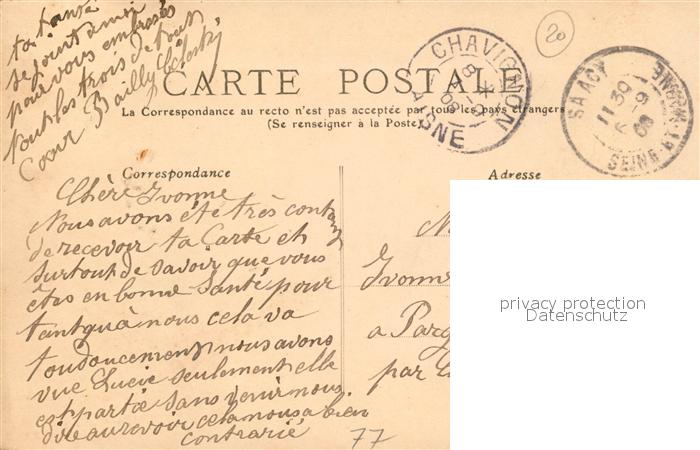 ta tante
se joint à moi
pour vous embrasser
tout les trois de tout
cœur Bailly
CARTE POSTALE
La Correspondance au recto n'est pas acceptée par tous les pays étrangers
(Se renseigner à la Poste)
CHAVIGNON
AISNE
20
SAACY
11 30
SEINE-ET-MARNE
Correspondance
Adresse
Chère Yvonne
Nous avons été très content
de recevoir ta Carte et
surtout de savoir que vous
êtes en bonne Santé pour
tant qu'à nous cela va
toudoucement nous avons
vue Lucie seulement elle
est partie sans venir nous
dire au revoir cela nous a bien
contrarié
Yvonne
a Parg
par
77
privacy protection
Datenschutz